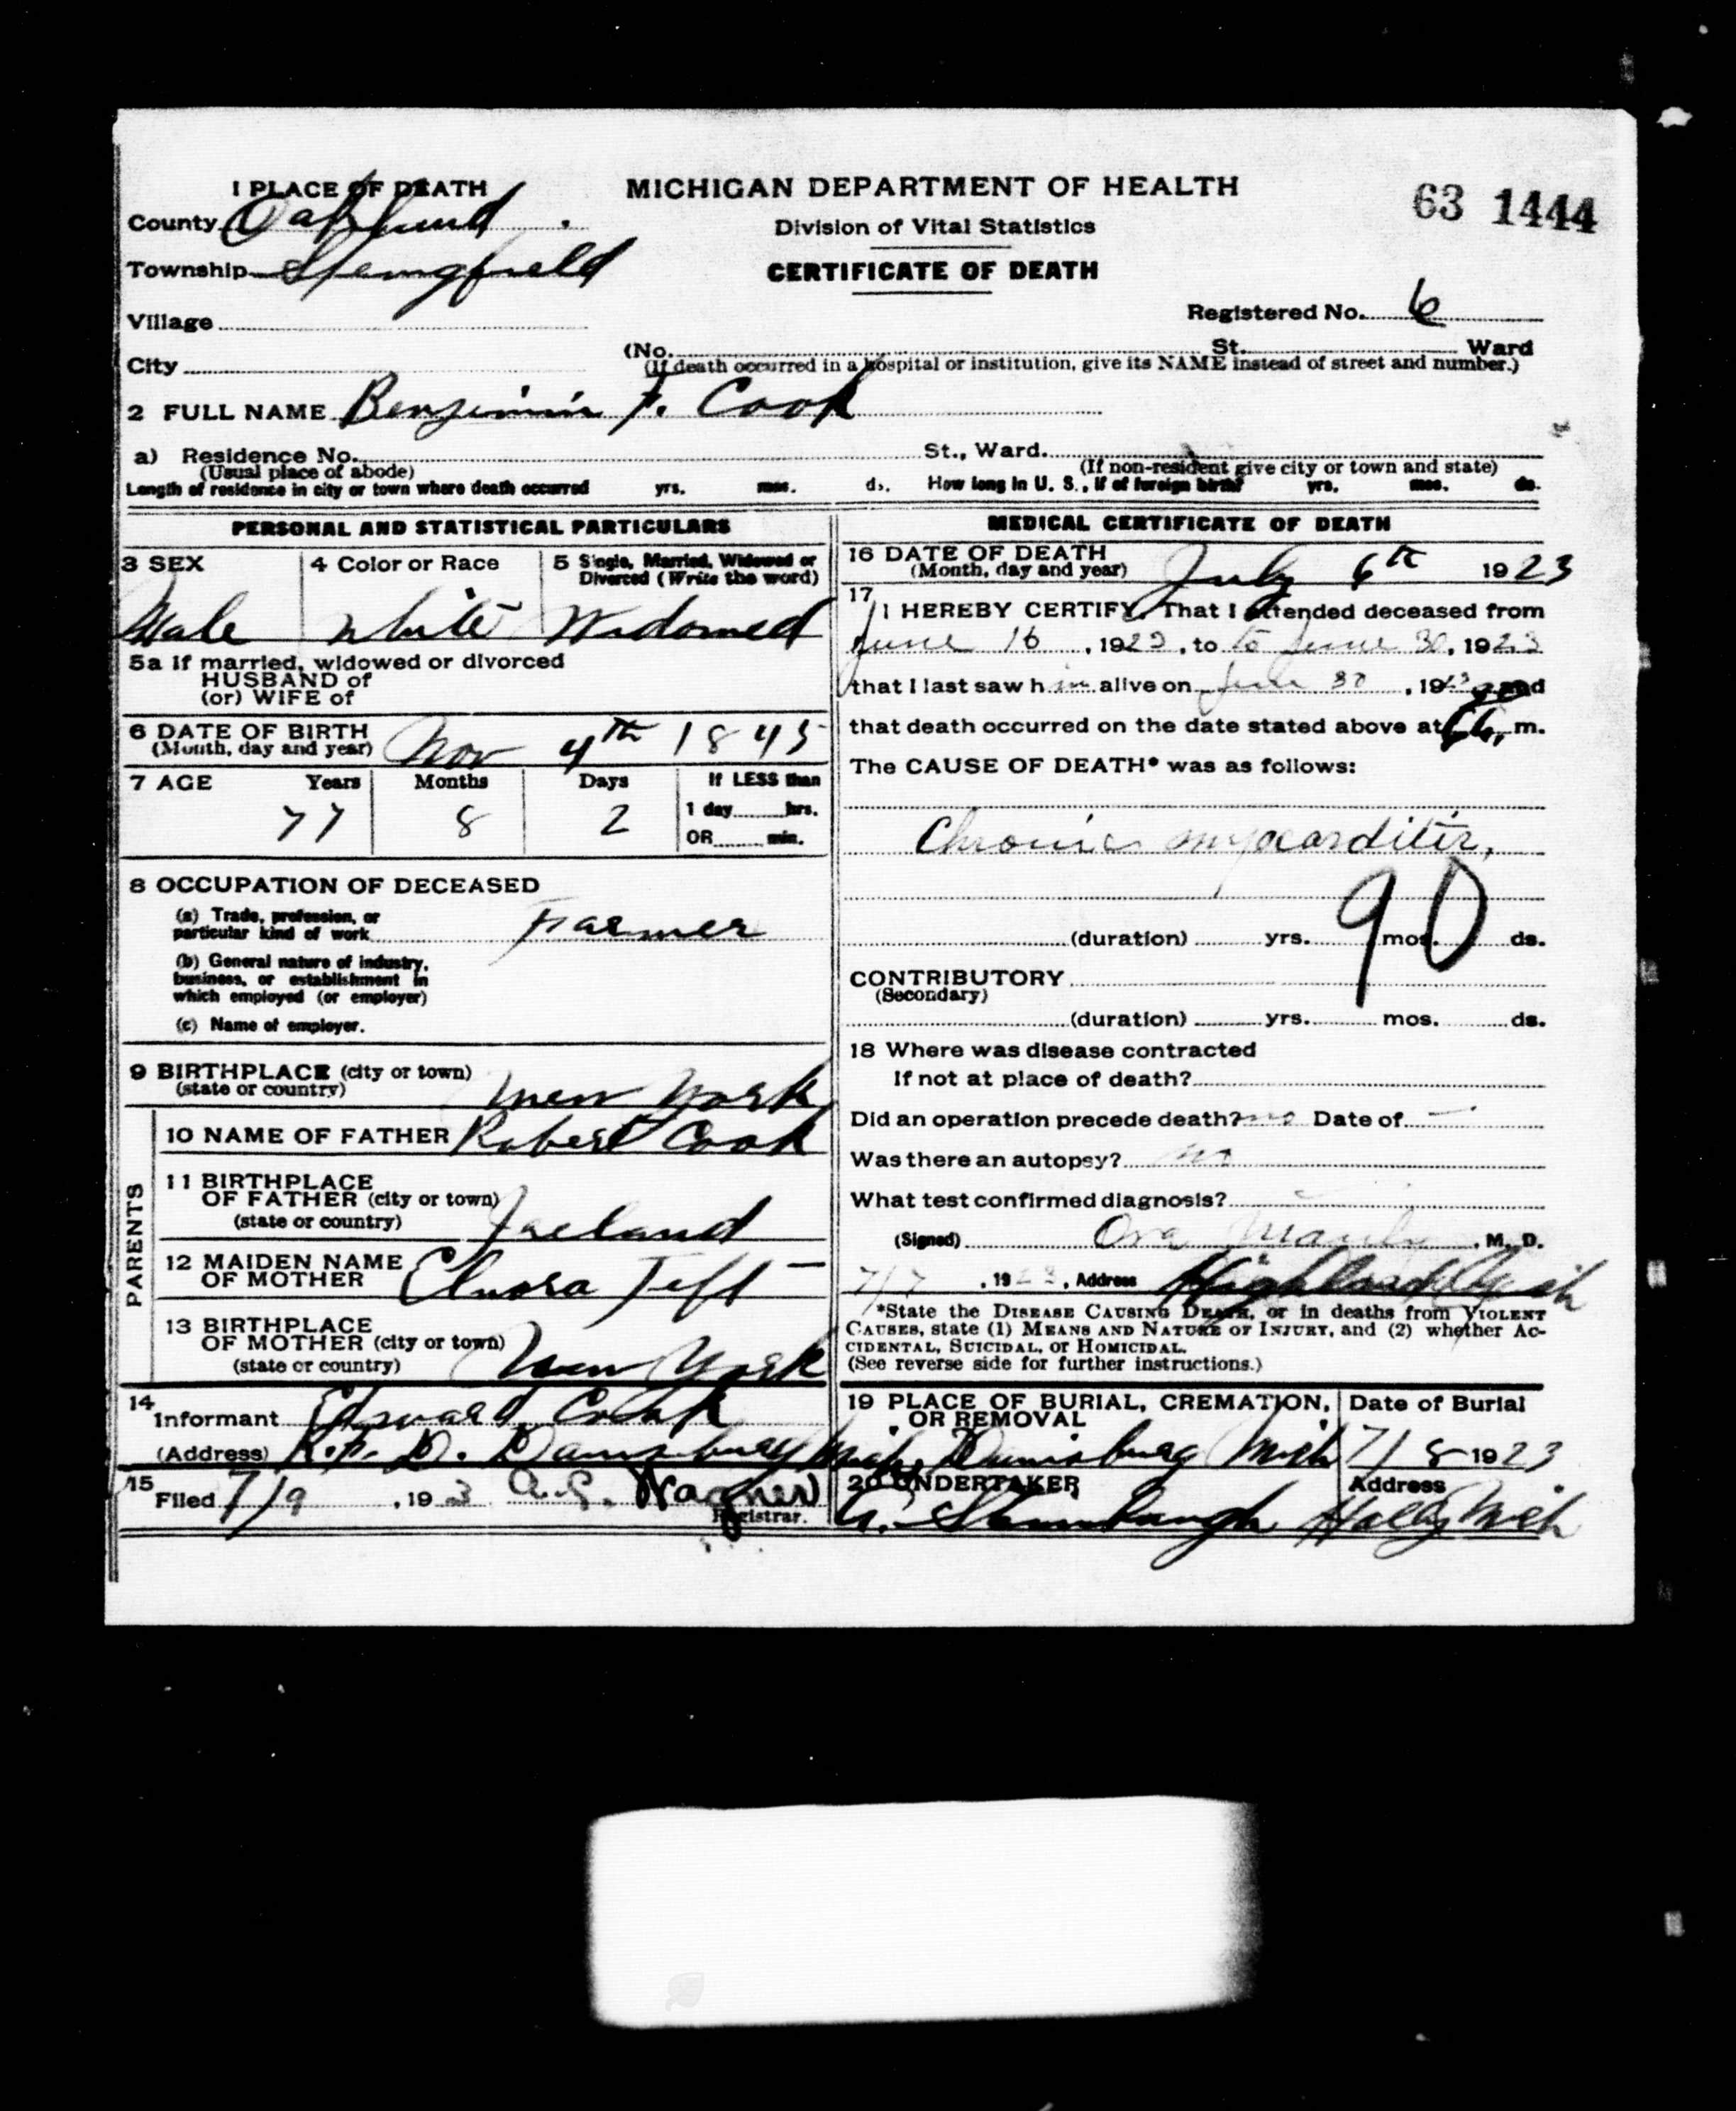 1 PLACE OF DEATH
MICHIGAN DEPARTMENT OF HEALTH
63 1444
County Oakland
Division of Vital Statistics
Township Springfield
CERTIFICATE OF DEATH
Village
Registered No. 6
City
(No. St. Ward
(If death occurred in a hospital or institution, give its NAME instead of street and number.)
2 FULL NAME Benjimin F. Cook
a) Residence No. St., Ward.
(Usual place of abode) (If non-resident give city or town and state)
Length of residence in city or town where death occurred yrs. mos. ds. How long in U. S., if of foreign birth? yrs. mos. ds.
PERSONAL AND STATISTICAL PARTICULARS
3 SEX
Male
4 Color or Race
White
5 Single, Married, Widowed or
Divorced (Write the word)
Widowed
5a If married, widowed or divorced
HUSBAND of
(or) WIFE of
6 DATE OF BIRTH
(Month, day and year) Nov 4th 1845
7 AGE Years Months Days If LESS than
77 8 2
1 day hrs.
OR min.
8 OCCUPATION OF DECEASED
(a) Trade, profession, or
particular kind of work Farmer
(b) General nature of industry,
business, or establishment in
which employed (or employer)
(c) Name of employer.
9 BIRTHPLACE (city or town)
(state or country) New York
PARENTS
10 NAME OF FATHER Robert Cook
11 BIRTHPLACE
OF FATHER (city or town)
(state or country) Ireland
12 MAIDEN NAME
OF MOTHER Elnora Tefft
13 BIRTHPLACE
OF MOTHER (city or town)
(state or country) New York
14
Informant Edward Cook
(Address) R.F.D. Davisburg Mich
15
Filed 7/9, 1923 A.G. Wagner
Registrar.
MEDICAL CERTIFICATE OF DEATH
16 DATE OF DEATH
(Month, day and year) July 6th 1923
17
I HEREBY CERTIFY, That I attended deceased from
June 16, 1923, to to June 30, 1923
that I last saw h im alive on June 30, 1923 and
that death occurred on the date stated above at m.
The CAUSE OF DEATH* was as follows:
Chronic myocarditis,
90
(duration) yrs. mos. ds.
CONTRIBUTORY
(Secondary)
(duration) yrs. mos. ds.
18 Where was disease contracted
If not at place of death?
Did an operation precede death? no Date of —
Was there an autopsy? no
What test confirmed diagnosis? —
(Signed) Ora M. D.
7/7, 1923, Address Highland Mich
*State the DISEASE CAUSING DEATH, or in deaths from VIOLENT
CAUSES, state (1) MEANS AND NATURE OF INJURY, and (2) whether AC-
CIDENTAL, SUICIDAL, or HOMICIDAL.
(See reverse side for further instructions.)
19 PLACE OF BURIAL, CREMATION,
OR REMOVAL
Davisburg Mich
Date of Burial
7/8 1923
20 UNDERTAKER
Address
Holly Mich